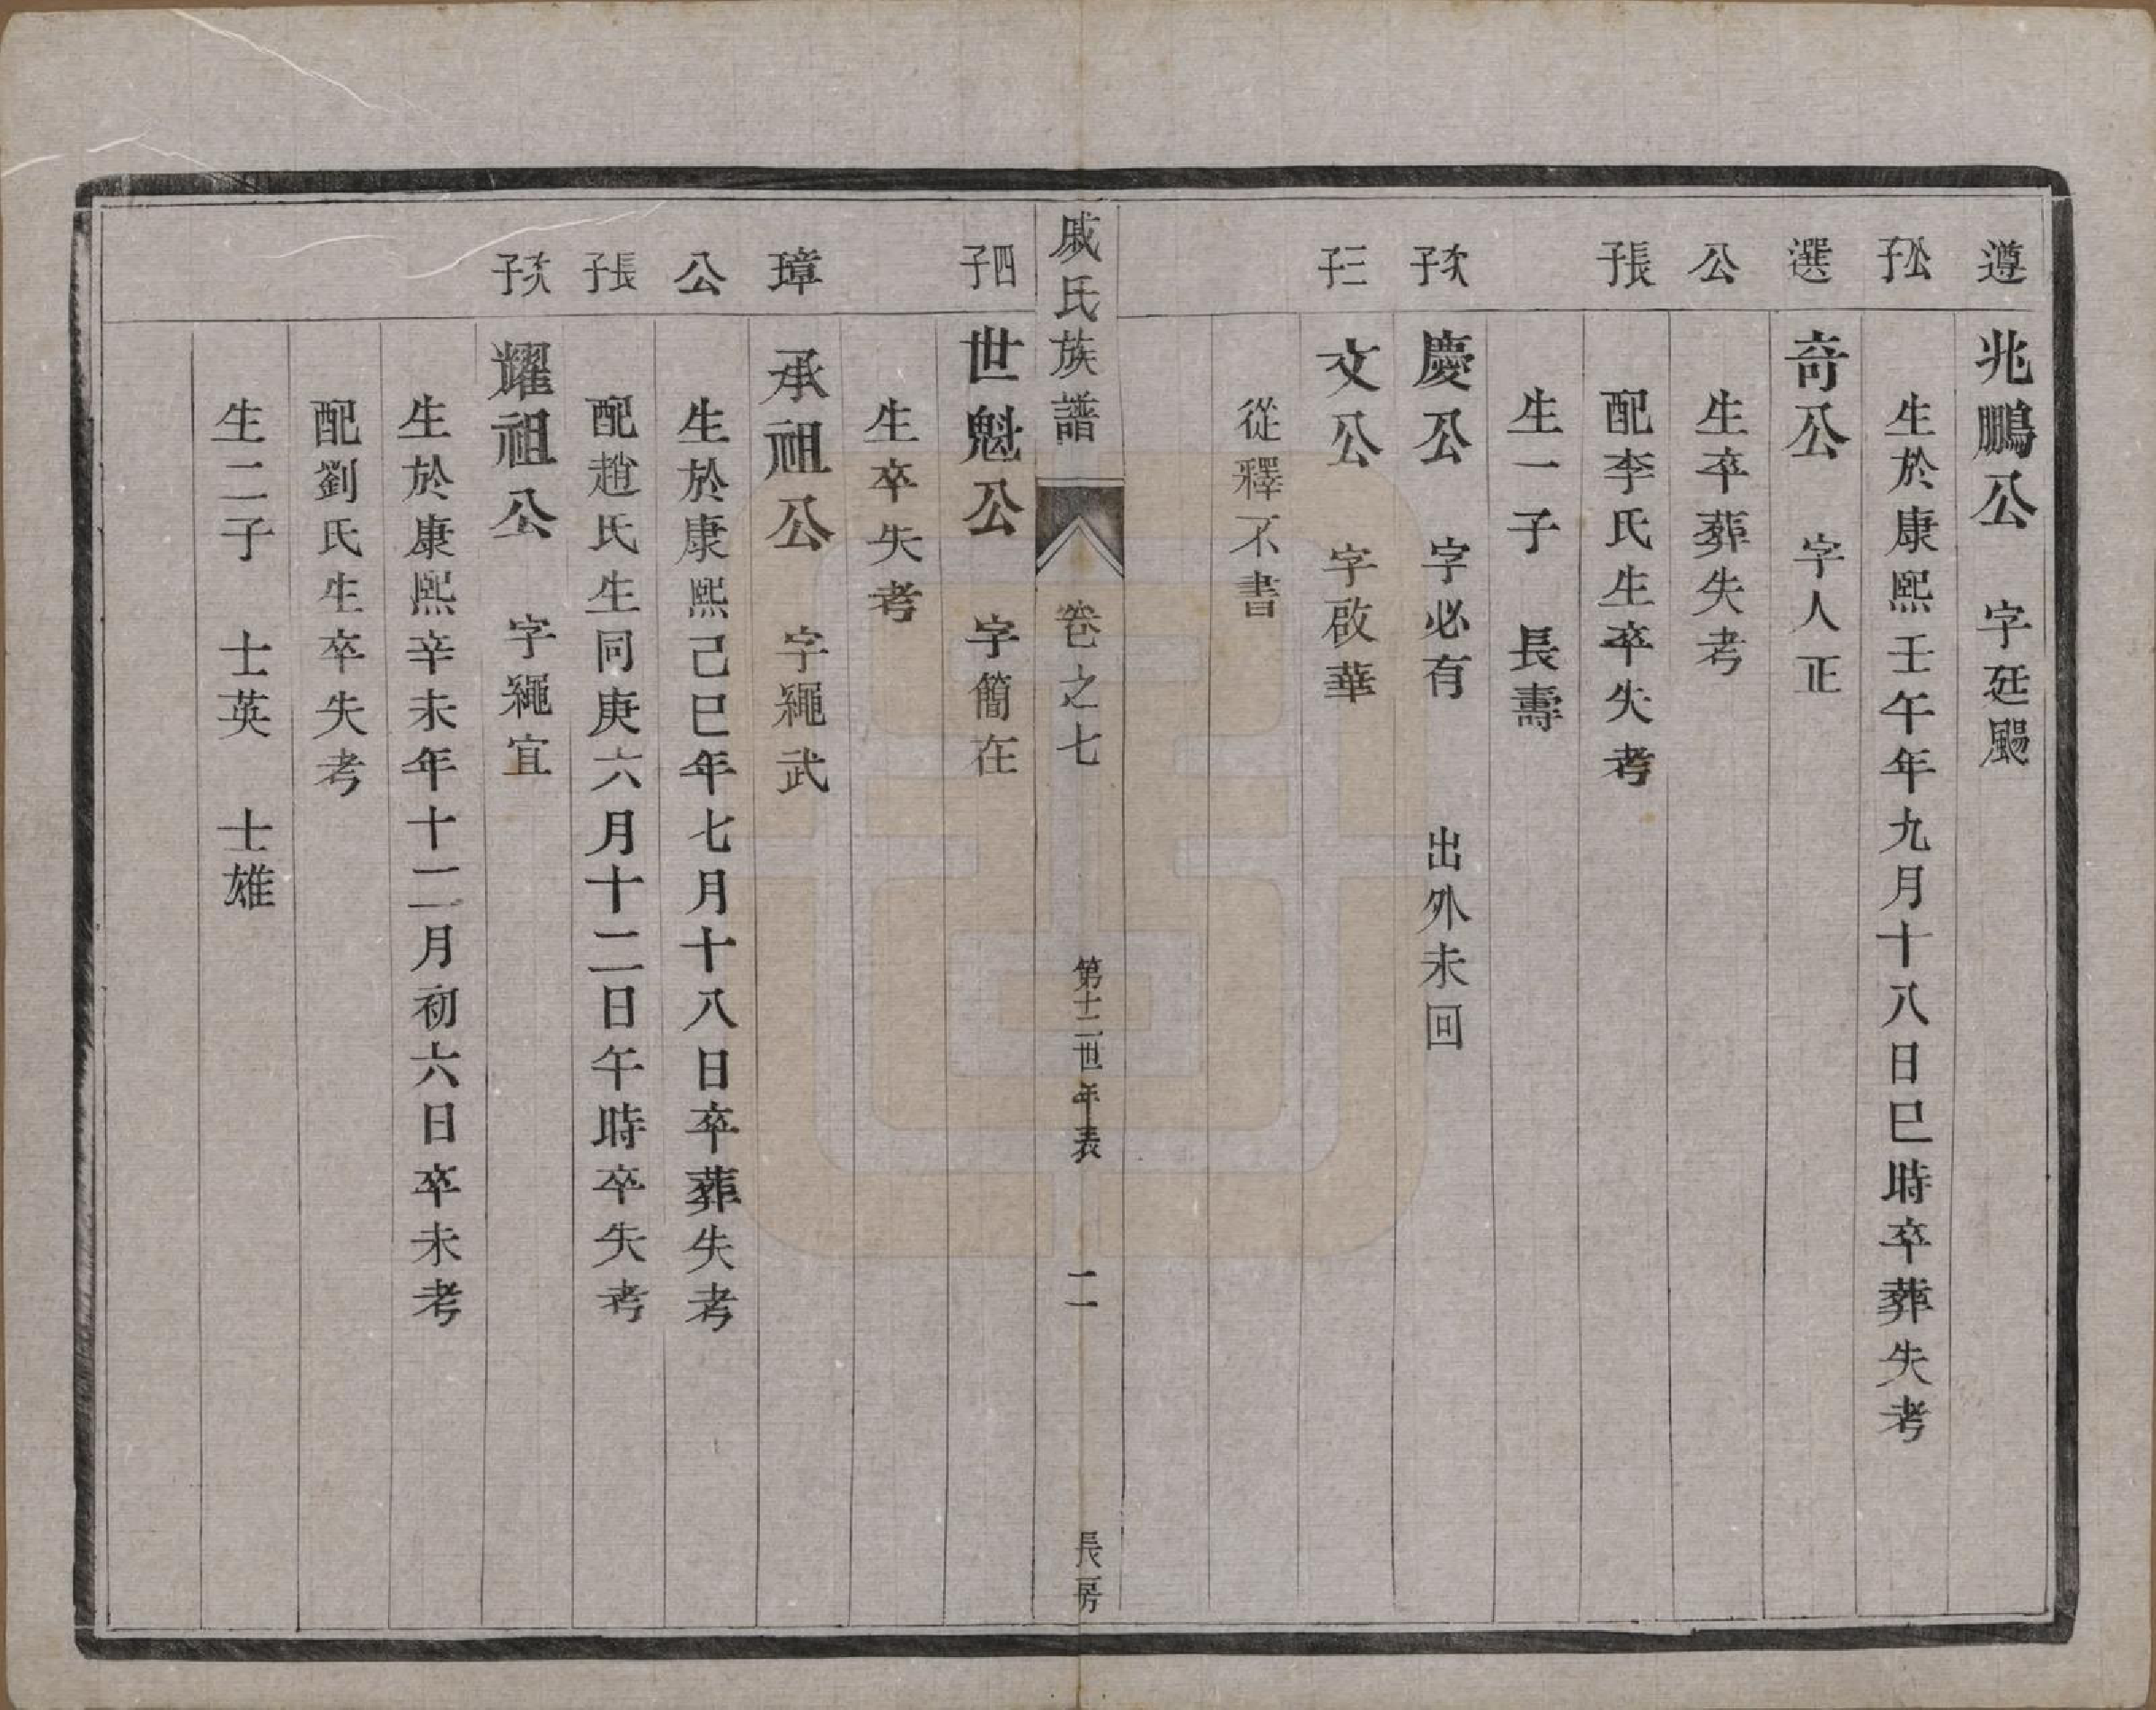 遵 兆鵬公 字廷颺
公子 生於康熙壬午年九月十八日巳時卒葬失考
選 奇公 字人正
公 生卒葬失考
長子 配李氏生卒失考
生一子 長壽
次子 慶公 字必有 出外未回
三子 文公 字啟華
從釋不書
戚氏族譜 卷之七 第十二世年表 二 長房
四子 世魁公 字簡在
生卒失考
璋 承祖公 字繩武
公 生於康熙己巳年七月十八日卒葬失考
長子 配趙氏生同庚六月十二日午時卒失考
次子 耀祖公 字繩宜
生於康熙辛未年十二月初六日卒未考
配劉氏生卒失考
生二子 士英 士雄